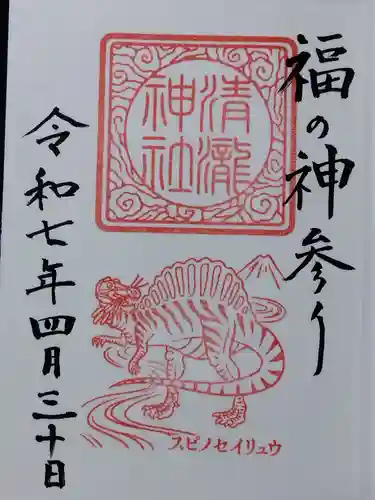 福の神参り
清瀧
神社
令和七年四月三十日
スピノセイリュウ